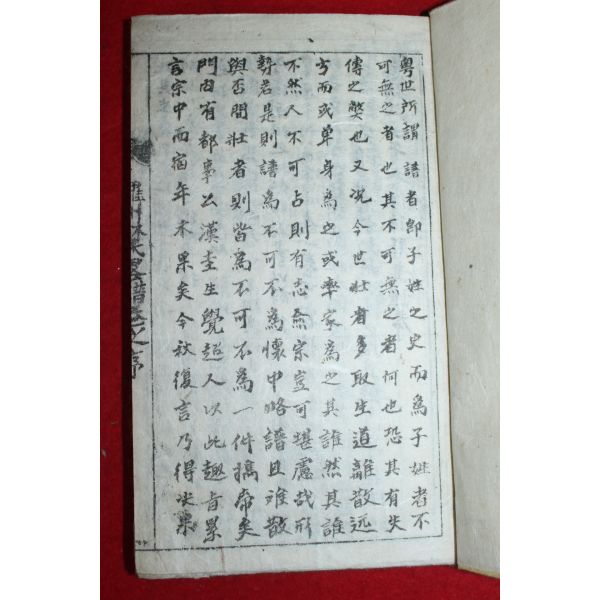 粤世所謂譜者卽子姓之史而爲子姓者不
可無之者也其不可無之者何也恐其有失
傳之弊也又況今世壯者多取生道離散远
方而或單身爲之或率家爲之其誰然其誰
不然人不可占則有志於宗豈可堪慮哉形
勢若是則譜爲不可不爲懷中略譜且难散
與否間壯者則皆爲不可不爲一件携帶矣
門內有都事公漢奎生覺超人以此趣旨累
言宗中而宿年未果矣今秋復言乃得决票
林氏 譜 之序